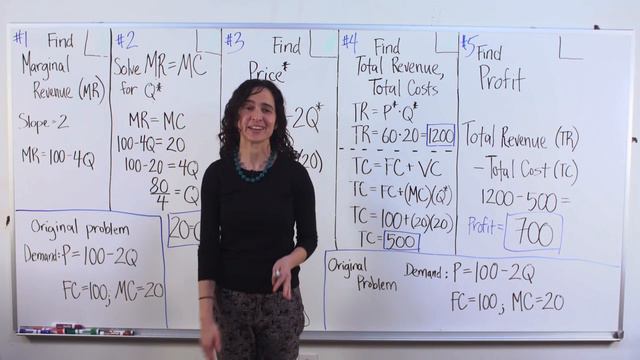 #1 Find
Marginal
Revenue (MR)
Slope=2
MR=100-4Q
Original problem
Demand: P=100-2Q
FC=100; MC=20
#2
Solve MR=MC
for Q*
MR=MC
100-4Q=20
100-20=4Q
80/4=Q
20=
#3
Find
Price*
2Q*
20)
#4 Find
Total Revenue,
Total Costs
TR=P*·Q*
TR=60·20=1200
TC=FC+VC
TC=FC+(MC)(Q*)
TC=100+(20)(20)
TC=500
#5 Find
Profit
Total Revenue (TR)
-Total Cost (TC)
1200-500=
Profit=700
Original
Problem
Demand: P=100-2Q
FC=100; MC=20